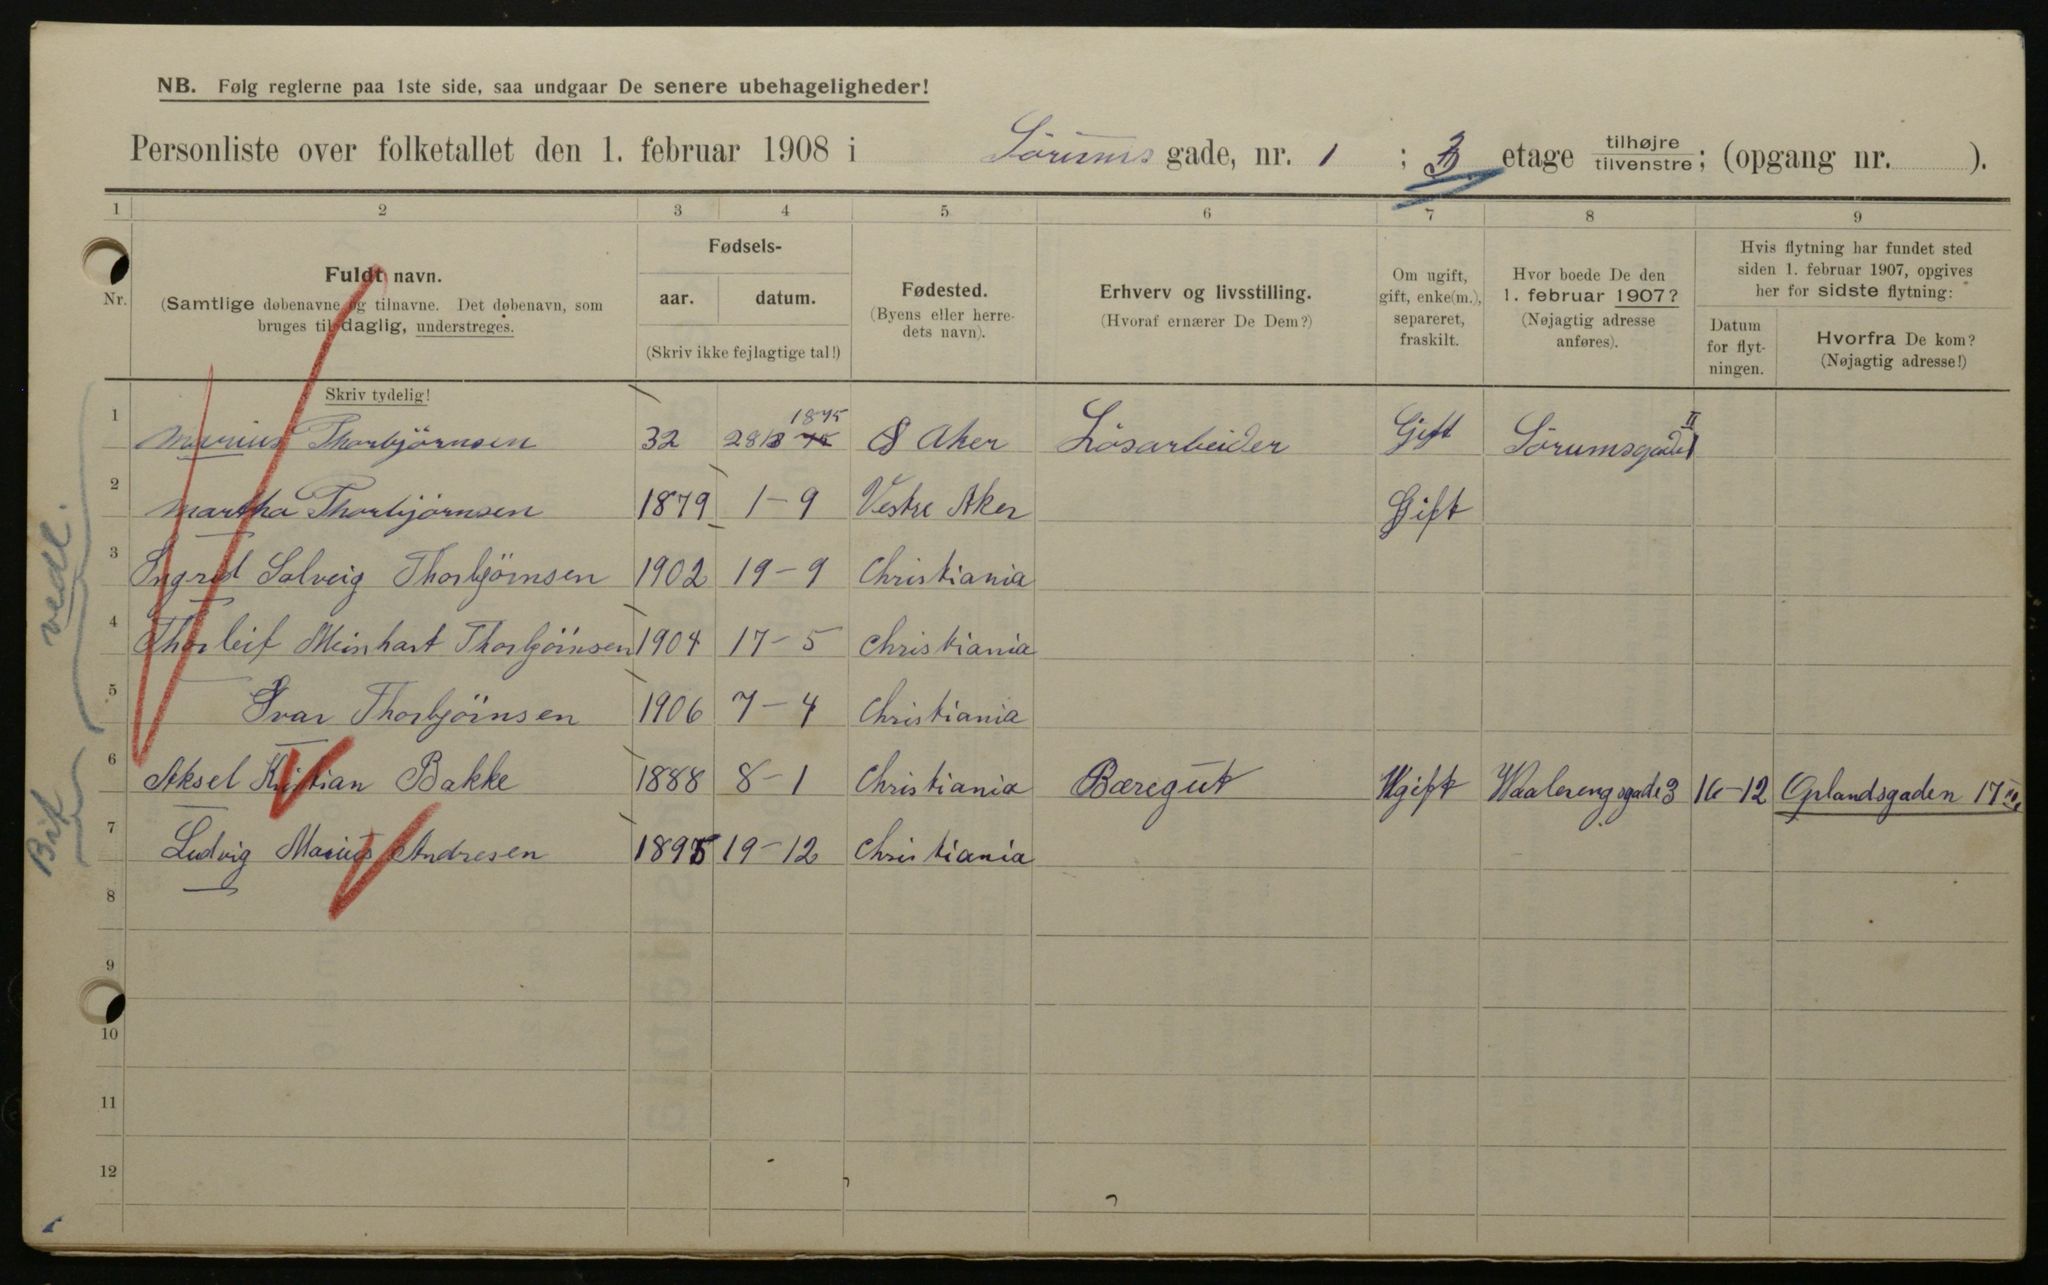 NB. Følg reglerne paa 1ste side, saa undgaar De senere ubehageligheder!
Personliste over folketallet den 1. februar 1908 i Sörums gade, nr. 1 ; 3 etage tilhøjre tilvenstre; (opgang nr. ).
1 2 3 4 5 6 7 8 9
Nr.
Fuldt navn.
(Samtlige døbenavne og tilnavne. Det døbenavn, som
bruges til daglig, understreges.
Skriv tydelig!
Fødsels-
aar. datum.
(Skriv ikke fejlagtige tal!)
Fødested.
(Byens eller herre-
dets navn).
Erhverv og livsstilling.
(Hvoraf ernærer De Dem?)
Om ugift,
gift, enke(m.),
separeret,
fraskilt.
Hvor boede De den
1. februar 1907?
(Nøjagtig adresse
anføres).
Hvis flytning har fundet sted
siden 1. februar 1907, opgives
her for sidste flytning:
Datum
for flyt-
ningen.
Hvorfra De kom?
(Nøjagtig adresse!)
1 Marius Thorbjörnsen 32 28 1875 Aker Lösarbeider Gift Sörumsgade 1 II
2 Martha Thorbjörnsen 1879 1-9 Vestre Aker Gift
3 Ingrid Solveig Thorbjörnsen 1902 19-9 Christiania
4 Thorleif Meinhart Thorbjörnsen 1904 17-5 Christiania
5 Ivar Thorbjörnsen 1906 7-4 Christiania
6 Aksel Kristian Bakke 1888 8-1 Christiania Bæregut Ugift Waalerengsgade 3 16-12 Oplandsgaden 17
7 Ludvig Marius Andresen 1895 19-12 Christiania
8
9
10
11
12
vedl.